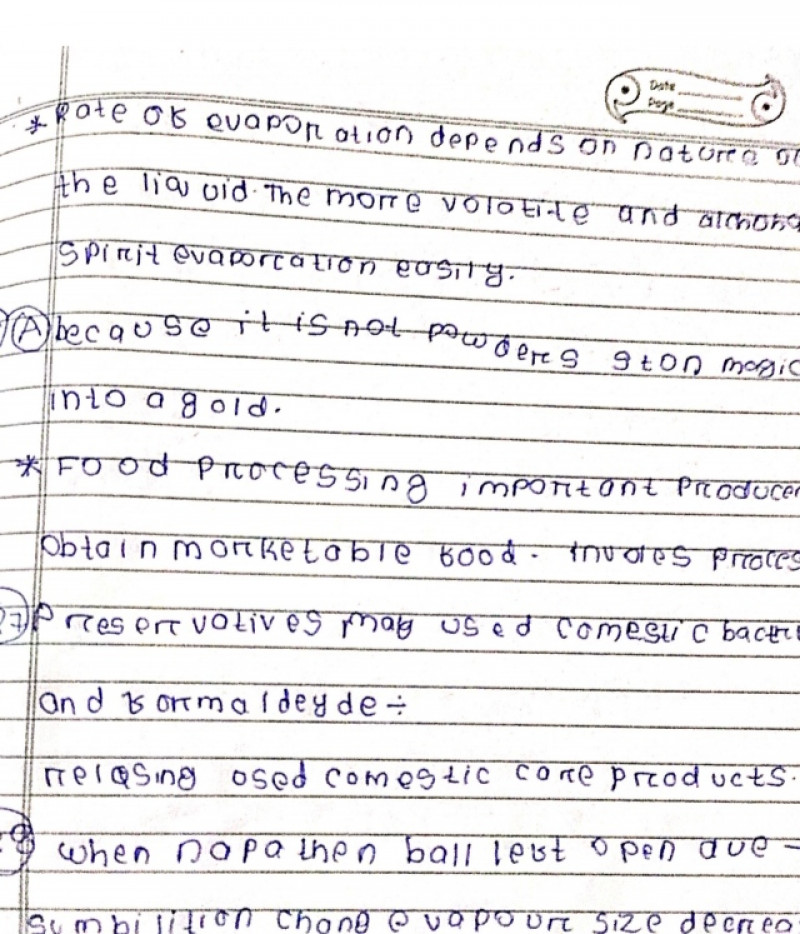 Date
Page
* Rate of evaporation depends on nature of
the liquid. The more volatile and
spirit evaporcation easily.
(A) because it is not powders ston magic
into a gold.
* Food processing important producer
obtain marketable food. Involes proces
preservatives may used comestic
and formaldeyde ÷
relasing osed comestic care products.
when napathen ball left open due -
chang e vapour size decrea